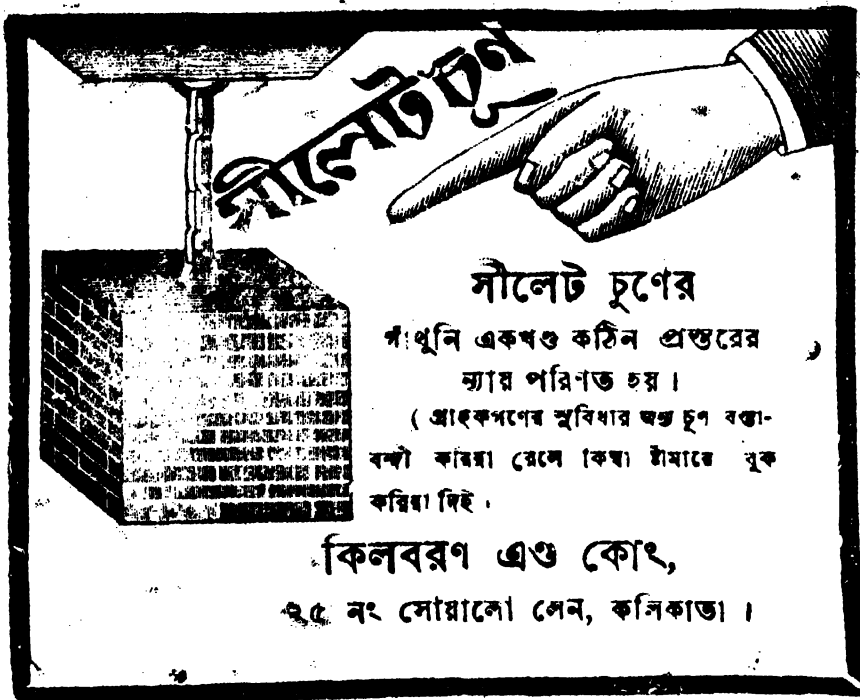 সীলেট চূণ
সীলেট চুণের
গাঁথুনি একখণ্ড কঠিন প্রস্তরের
ন্যায় পরিণত হয় ।
( গ্রাহকগণের সুবিধার জন্য চুণ বস্তা-
বন্দী করিয়া রেলে কিম্বা ষ্টীমারে বুক
করিয়া দিই ।
কিলবরণ এণ্ড কোং,
২৫ নং সোয়ালো লেন, কলিকাতা ।